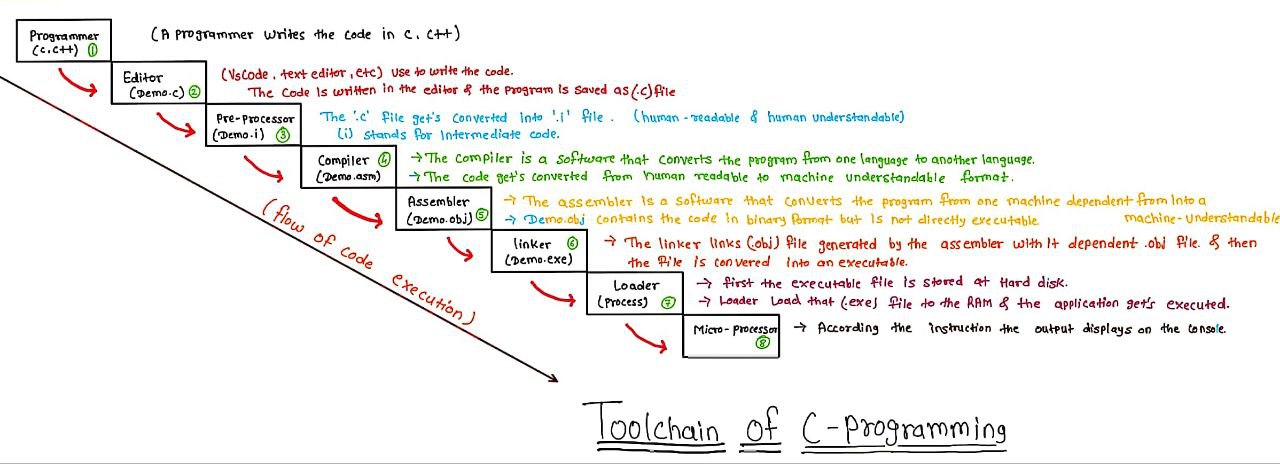 Programmer
(C,C++) ①
(A Programmer writes the code in C, C++)
Editor
(Demo.c) ②
(VsCode, text editor, etc) use to write the code.
The code is written in the editor & the program is saved as (.c) file
Pre-processor
(Demo.i) ③
The '.c' file get's converted into '.i' file. (human-readable & human understandable)
(i) stands for Intermediate code.
Compiler ④
(Demo.asm)
→ The compiler is a software that converts the program from one language to another language.
→ The code get's converted from human readable to machine understandable format.
Assembler
(Demo.obj) ⑤
→ The assembler is a software that converts the program from one machine dependent from into a
machine-understandable
→ Demo.obj contains the code in binary format but is not directly executable
linker ⑥
(Demo.exe)
→ The linker links (.obj) file generated by the assembler with it dependent .obj file. & then
the file is convered into an executable.
Loader
(Process) ⑦
→ first the executable file is stored at Hard disk.
→ Loader Load that (.exe) file to the RAM & the application get's executed.
Micro-processor
⑧
→ According the instruction the output displays on the console.
(flow of code execution)
Toolchain of C-programming